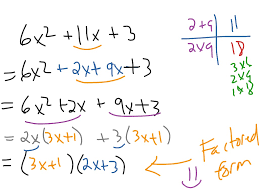 6x² + 11x + 3
= 6x² + 2x + 9x + 3
= 6x² + 2x + 9x + 3
= 2x(3x+1) + 3(3x+1)
= (3x+1)(2x+3)
2+9 | 11
2x9 | 18
3x6
2x9
1x18
11
Factored
form